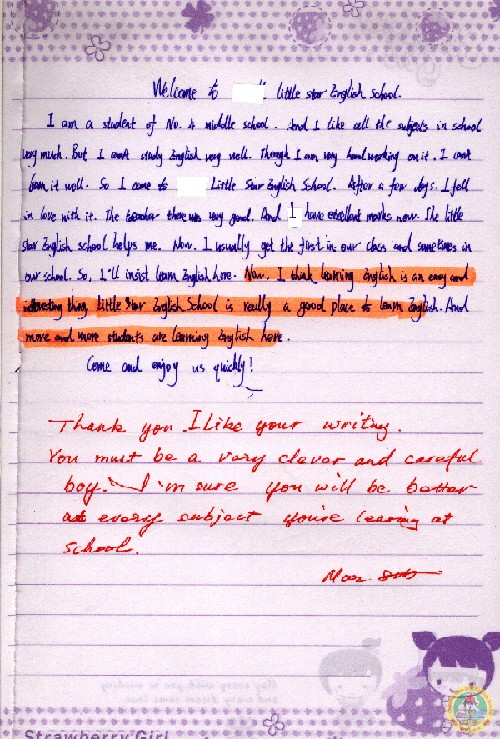 Welcome to little star English School.
I am a student of No. 4 middle school. And I like all the subjects in school
very much. But I can't study English very well. Though I am very hardworking on it. I can't
learn it well. So I came to Little Star English School. After a few days. I fell
in love with it. The teacher there was very good. And I have excellent marks now. The little
star English school helps me. Now. I usually get the first in our class and sometimes in
our school. So, I'll insist learn English here. Now, I think learning English is an easy and
interesting thing. little star English School is really a good place to learn English. And
more and more students are learning English here.
Come and enjoy us quickly!
Thank you I like your writing.
You must be a very clever and careful
boy. I'm sure you will be better
at every subject you're learning at
school.
Strawberry Girl